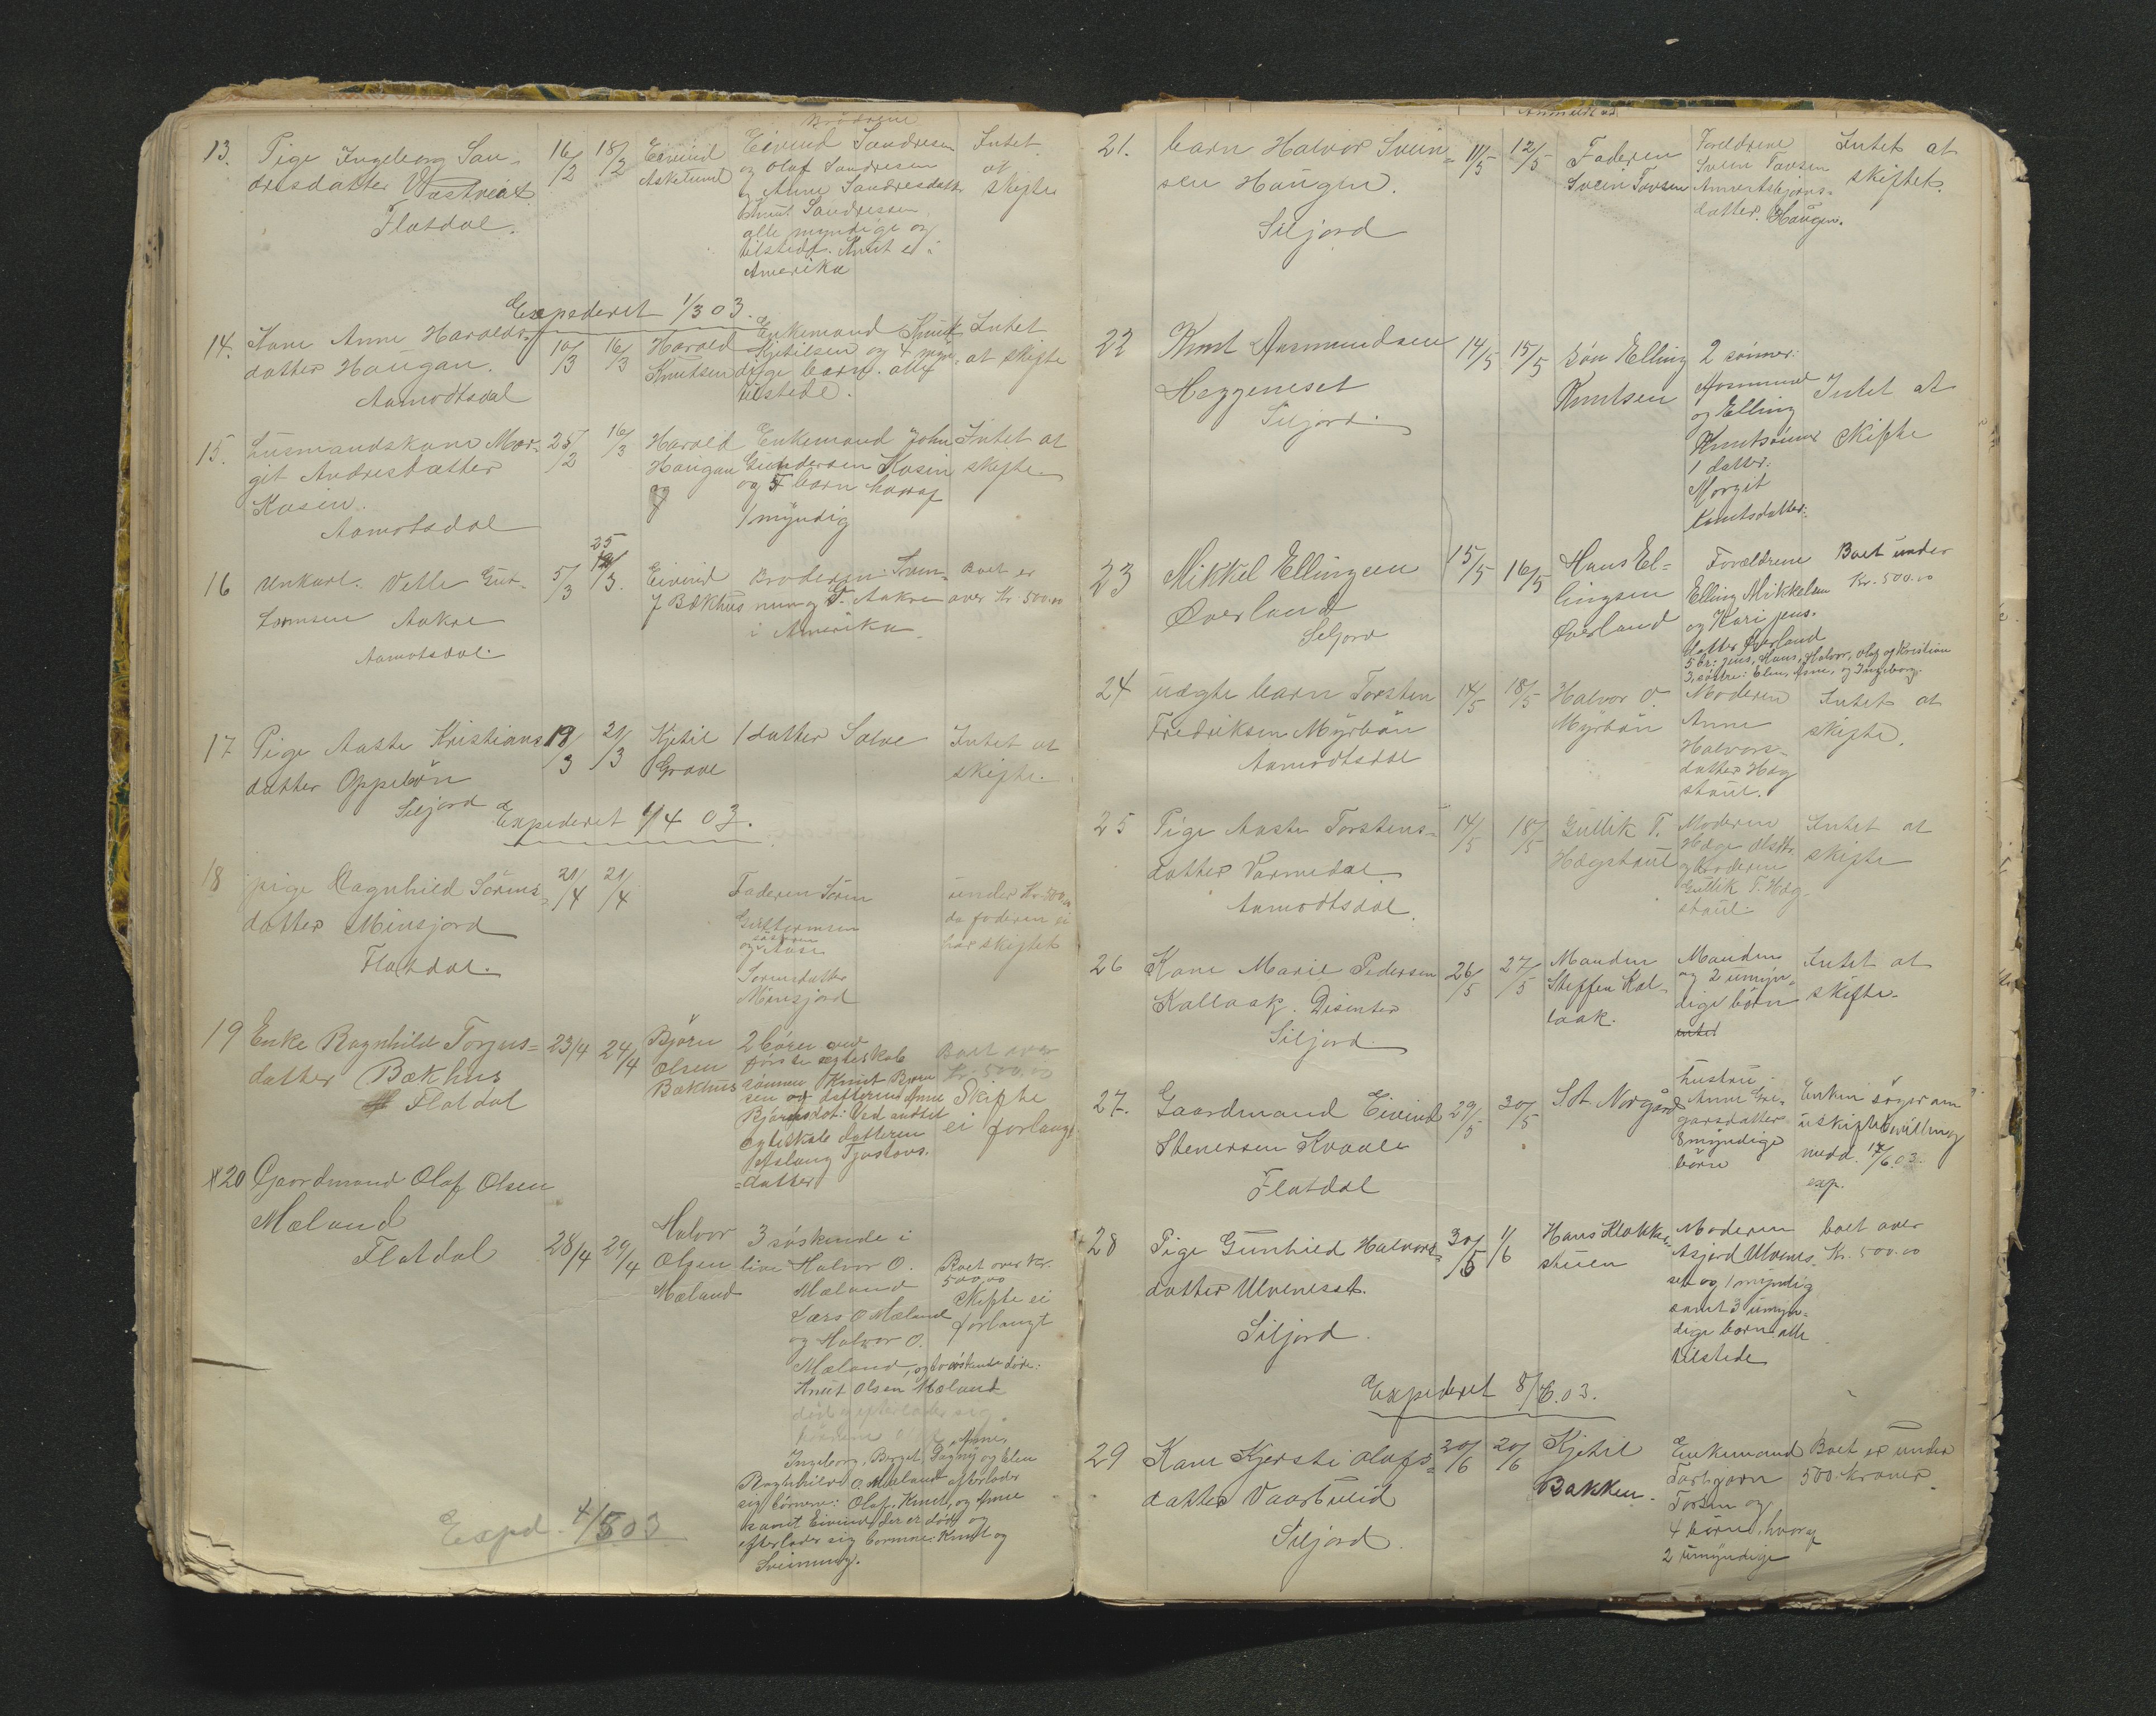 Brødrene
13. Pige Ingeborg San-
dresdatter Vastveit
Flatdal.
16/2 18/2
Eivind
Askelund
Eivind Sandresen
og Olaf Sandresen
og Anne Sandresdatt
Knut Sandresen
alle myndige og
tilstede. Knut er i
Amerika
Intet
at
skifte
Expederet 1/3 03.
14. Kone Anne Haralds-
datter Haugan.
Aamodtsdal
10/3 16/3
Harald
Knutsen
Enkemand Knut
Kjetilsen og 4 myn-
dige børn. alle
tilstede.
Intet
at skifte
15. Husmandskone Mar-
git Andresdatter
Kasin.
Aamotsdal
25/2 16/3
Harald
Haugan
Enkemand John
Gundersen Kasin
og 5 børn hvoraf
1 myndig
Intet at
skifte.
16 Unkarl. Vetle Gut-
tormsen Aakre
Aamotsdal.
5/3 25/3.
Eivind
J Bækhus
Broderen Svein-
nung G. Aakre
i Amerika.
Boet er
over Kr. 500.00
17 Pige Aaste Kristians
datter Oppebøn
Seljord
19/3 21/3
Kjetil
Grave
1 datter Solve
Intet at
skifte.
Expederet 1/4 03.
18 pige Ragnhild Sørens-
datter Minsjord
Flatdal.
21/4 21/4
Faderen Søren
Guttormsen
og søsteren Aase
Sørensdatter
Minsjord
under Kr. 500.00
da faderen ei
har skiftet
19 Enke Ragnhild Torjus-
datter Bækhus
Flatdal
23/4 24/4
Bjørn
Olsen
Bækhus
2 børn ved
første ægteskab
sønnen Knut Bjørn
sen og datteren Anne
Bjørnsdat: Ved andet
ægteskab datteren
Aslaug Tjostovs-
datter
Boet over
Kr. 500.00
Skifte
ei forlangt
x20 Gaardmand Olaf Olsen
Mæland
Flatdal
28/4 29/4
Halvor
Olsen
Mæland
3 søskende i
live Halvor O.
Mæland
Lars O Mæland
og Halvor O.
Mæland, og to søskende døde:
Knut Olsen Mæland
død efterlader sig
børnene Anne,
Ingeborg, Birgit, Dagny og Elen
Ragnhild O. Mæland efterlader
sig børnene: Olaf, Knut, og Anne
samt Eivind der er død og
efterlader sig børnene: Knut og
Sveinung.
Boet over Kr.
500,00
Skifte ei
forlangt
Expd. 4/5 03
Anmeldt ad
21. barn Halvor Svein-
sen Haugen.
Siljord
11/5 12/5
Faderen
Svein Tovsen
Foreldrene
Svein Tovsen
datter. Haugen.
Intet at
skiftet.
22 Knut Aasmundsen
Heggeneset
Siljord.
14/5 15/5
Søn Elling
Knutsen
2 sønner:
Aasmund
og Elling
Knutsønner
1 datter:
Margit
Knutsdatter:
Intet at
Skifte
23 Mikkel Ellingsen
Øverland
Seljord
15/5 16/5
Hans El-
lingsen
Øverland
Forældrene
Elling Mikkelsen
og Kari Jens-
datter Øverland
5 br: Jens, Hans, Halvor, Olaf og Kristian
3 søstre: Elen, Anne, og Ingeborg.
Boet under
Kr. 500.00
24 uægte barn Torsten
Fredriksen Myrbøn
Aamodtsdal
14/5 18/5
Halvor O.
Myrbøn
Moderen
Anne
Halvors-
datter Hæg
staul.
Intet at
skifte.
25 Pige Aaste Torstens-
datter Varmedal.
Aamodtsdal.
14/5 18/5
Gullik T.
Hægstaul
Moderen
Hæge Olsdtr.
og broderen
Gullik T. Hæg-
staul.
Intet at
skifte
26 Kone Marie Pedersen
Kallaak. Disenter
Siljord.
26/5 27/5
Manden
Steffen Kal-
laak.
Manden
og 2 umyn-
dige børn
Intet at
skifte.
27. Gaardmand Eivind
Stenersen Kvaale
Flatdal
29/5 30/5
S. A. Norgård
hustru
Anne Gre-
garsdatter
8 myndige
børn
Enken søger om
uskiftebevilling
medd. 17/6.03.
exp.
28 Pige Gunhild Halvors-
datter Ulveneset.
Siljord.
30/5 1/6
Hans Klokker-
stuen
Moderen
Asjørd Ulvenes-
set og 1 myndig
samt 3 umyn-
dige børn alle
tilstede
boet over
Kr. 500.00
Expederet 8/6.03.
29 Kone Kjersti Olafs-
datter Vaartveid
Siljord.
20/6 20/6
Kjetil
Bakken.
Enkemand
Torbjørn
Torsen og
4 børn, hvoraf
2 umyndige
Boet er under
500 kroner